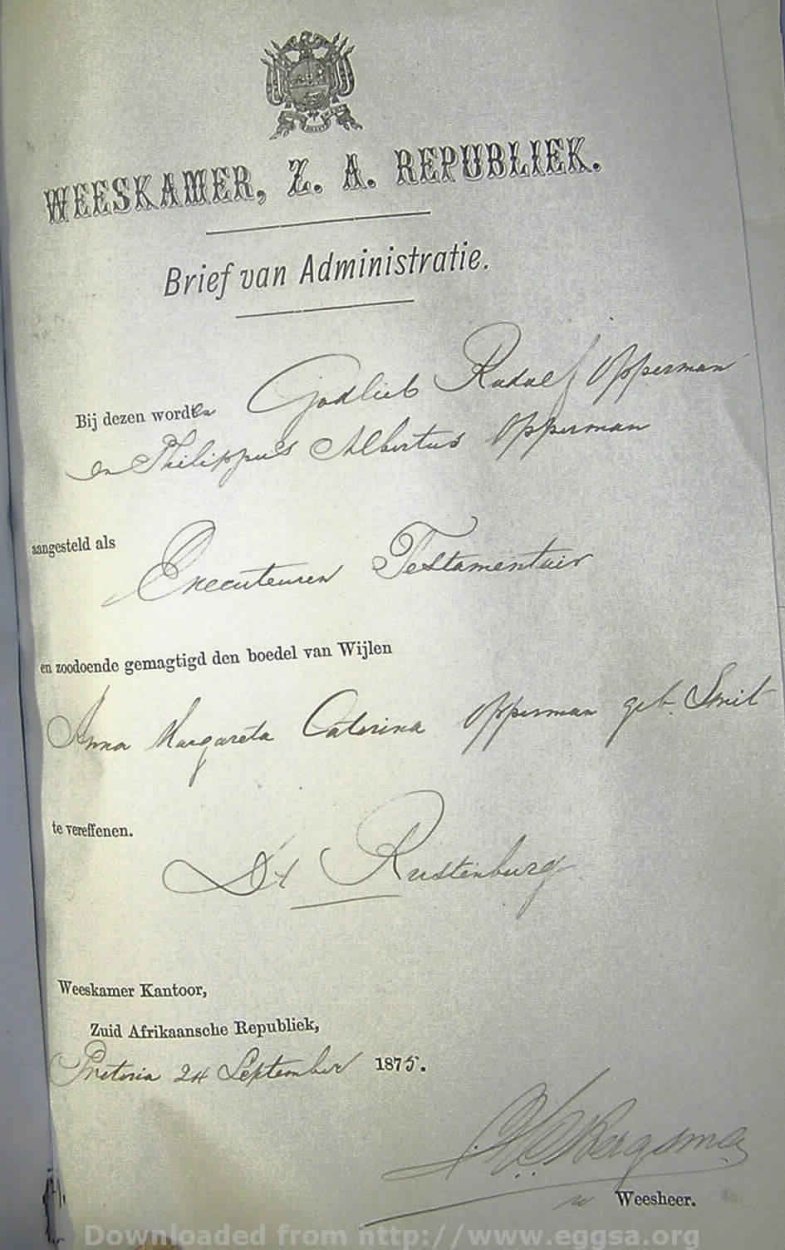 WEESKAMER, Z. A. REPUBLIEK.
Brief van Administratie.
Bij dezen worden Godlieb Rudolf Opperman
en Philippus Albertus Opperman
aangesteld als
Executeuren Testamentair
en zoodoende gemagtigd den boedel van Wijlen
Anna Margareta Catarina Opperman geb. Smit
te vereffenen.
Dt Rustenburg
Weeskamer Kantoor,
Zuid Afrikaansche Republiek,
Pretoria 24 September 1875.
Bergsma
Weesheer.
Downloaded from http://www.eggsa.org